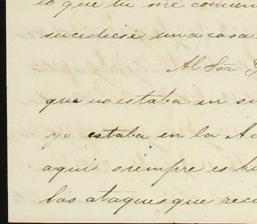 lo que tu me comun
sucediese una cosa
Al Sór
que no estaba en su
yo estaba en la Ac
aqui siempre es hu
bas ataques que rec